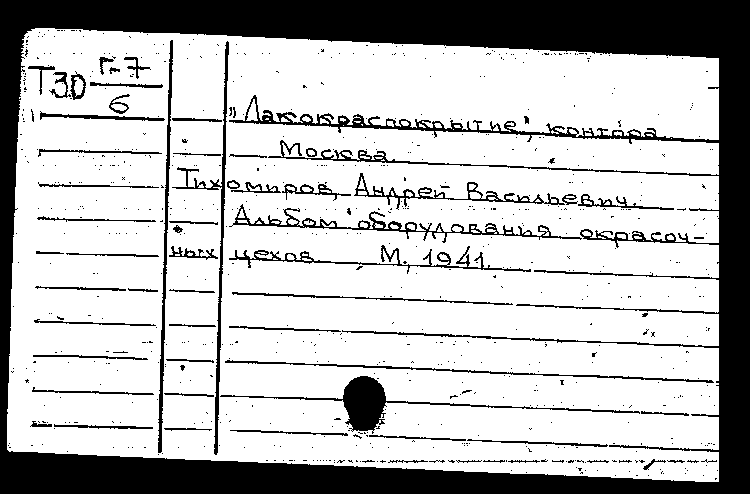 Т30 Г-7
6
"Лакокраспокрытие", контора.
Москва.
Тихомиров, Андрей Васильевич.
Альбом оборудования окрасоч-
ных цехов М., 1941.